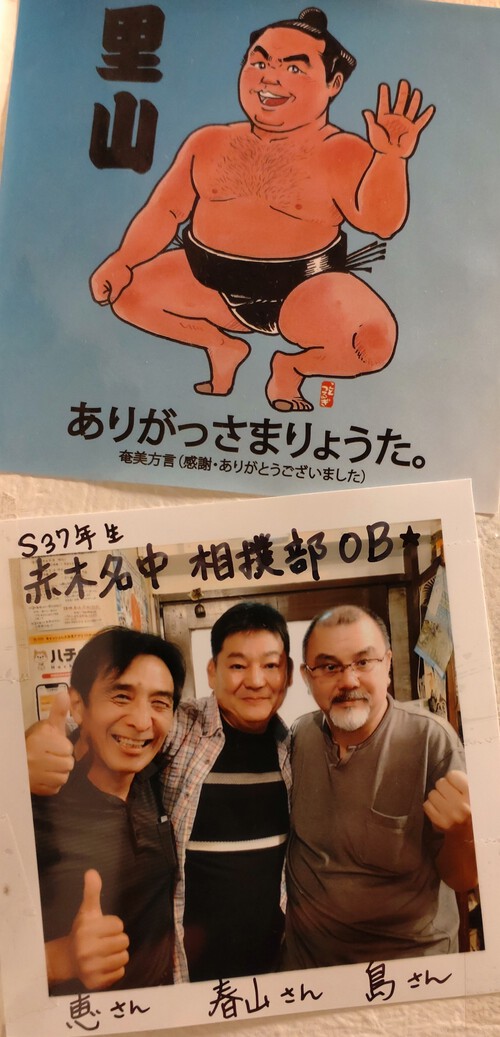 里山
ありがっさまりょうた。
奄美方言（感謝・ありがとうございました）
S37年生
赤木名中 相撲部OB★
ハチ
恵さん 春山さん 島さん